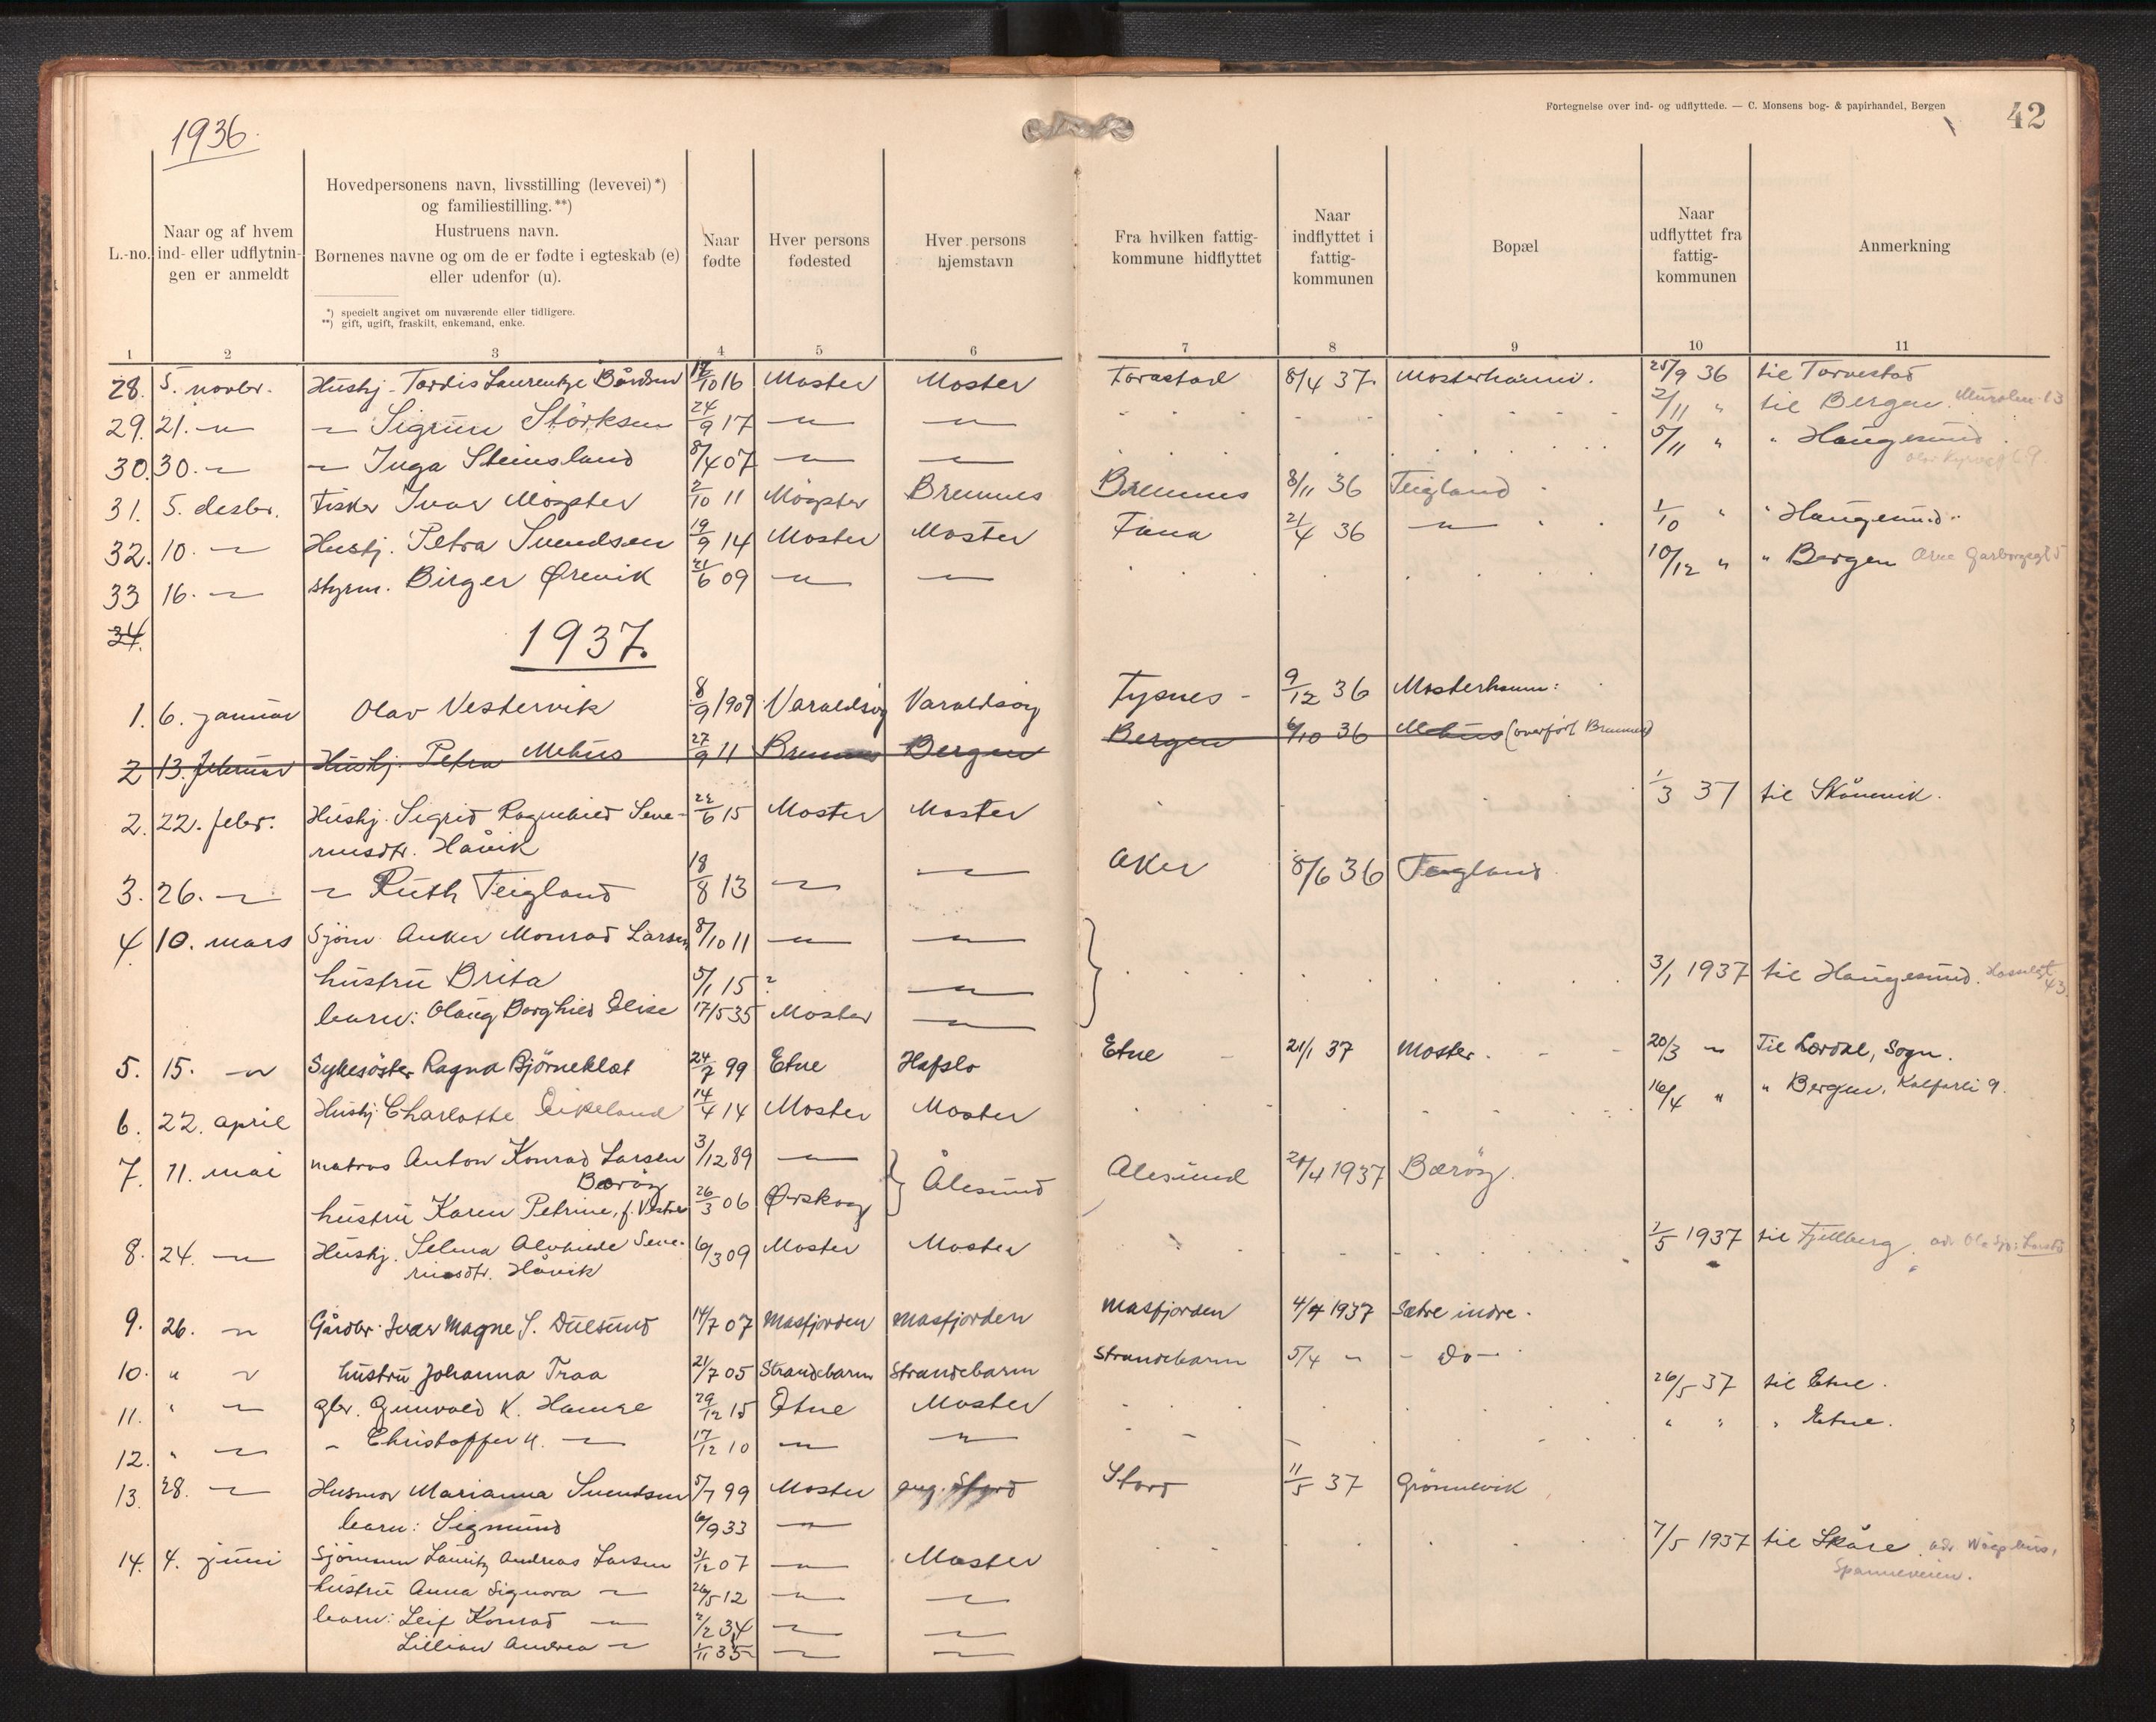 1936.
Fortegnelse over ind- og udflyttede. — C. Monsens bog- & papirhandel, Bergen
42
L.-no.
Naar og af hvem
ind- eller udflytnin-
gen er anmeldt
Hovedpersonens navn, livsstilling (levevei)*)
og familiestilling.**)
Hustruens navn.
Børnenes navne og om de er fødte i egteskab (e)
eller udenfor (u).
*) specielt angivet om nuværende eller tidligere.
**) gift, ugift, fraskilt, enkemand, enke.
Naar
fødte
Hver persons
fødested
Hver persons
hjemstavn
Fra hvilken fattig-
kommune hidflyttet
Naar
indflyttet i
fattig-
kommunen
Bopæl
Naar
udflyttet fra
fattig-
kommunen
Anmerkning
1 2 3 4 5 6 7 8 9 10 11
28. 5. novbr. Hushj. Tordis Laurentze Bårdsen 17/10 16 Moster Moster Torastad 8/4 37. Mosterhamn. 25/9 36 til Torvestad
29. 21. -"- -"- Sigrun Störksen 24/9 17 -"- -"- 2/11 " til Bergen.
30. 30. -"- -"- Inga Steinsland 8/4 07 -"- -"- 5/11 " " Haugesund
31. 5. desbr. Fisker Ivar Mögster 2/10 11 Mögster Bremnes Bremnes 8/11 36 Teigland
32. 10. -"- Hushj. Petra Svendsen 19/9 14 Moster Moster Fana 21/4 36 -"- 1/10 " " Haugesund
33 16. -"- styrm. Birger Ørevik 21/6 09 -"- -"- 10/12 " " Bergen Arne Garborgsgt 5
34.
1937.
1. 6. januar Olav Vestervik 8/9 1909 Varaldsöy Varaldsöy Tysnes - 9/12 36 Mosterhamn:
2 13. februar Hushj. Petra Mehus 27/9 11 Bremnes Bergen Bergen 6/10 36 Mehus (overfört Bremnes)
2. 22. febr. Hushj. Sigrid Ragnhild Seve- 22/6 15 Moster Moster 1/3 37 til Skånevik.
rinsdtr. Håvik
3. 26. -"- -"- Ruth Teigland 18/8 13 -"- -"- Aker 8/6 36 Teigland
4 10. mars Sjöm. Anker Monrad Larsen 8/10 11 -"- -"-
hustru Brita 5/1 15 ? -"- 3/1 1937 til Haugesund.
barn: Olaug Borghild Elise 17/5 35 Moster -"-
5. 15. -"- Sykesöster Ragna Björneklet 24/7 99 Etne Hafslo Etne 21/1 37 Moster. 20/3 -"- Til Lærdal, Sogn.
6. 22. april Hushj. Charlotte Eikeland 14/4 14 Moster Moster 16/4 " " Bergen, Kalfarli 9.
7. 11. mai matros Anton Konrad Larsen 3/12 89 -"-
Bæröy
Ålesund Alesund 20/4 1937 Bæröy.
hustru Karen Petrine, f. 26/3 06 Ørskog
8. 24. -"- Hushj. Selma Alvhilde Seve- 6/3 09 Moster Moster 1/5 1937 til Fjellberg
rinsdtr. Håvik
9. 26. -"- Gårdbr. Ivar Magne S. Dulsund 14/7 07 Masfjorden Masfjorden Masfjorden 4/4 1937 Sætre indre.
10. " -"- hustru Johanna Traa 21/7 05 Strandebarm Strandebarm Strandebarm 5/4 -"- - Do -
11. " -"- gbr. Gunvald K. Hamre 29/12 15 Etne Moster 26/5 37 til Etne.
12. " -"- - Christoffer K. -"- 17/12 10 -"- -"- " " " Etne.
13. 28. -"- Husmor Marianna Svendsen 5/7 99 Moster Stord Stord 11/5 37 Grönnevik
barn: Sigmund 6/9 33 -"-
14. 4. juni Sjömann Lauritz Andreas Larsen 3/12 07 -"- Moster 7/5 1937 til Skåre
Spanneveien.
hustru Anna Signora -"- 26/5 12 -"- -"-
barn: Leif Konrad -"- 2/2 34 -"- -"-
Lillian Andrea -"- 1/11 35 -"- -"-